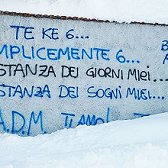 TE KE 6...
MPLICEMENTE 6...
STANZA DEI GIORNI MIEI...
STANZA DEI SOGNI MIEI...
A.D.M TI AMO!